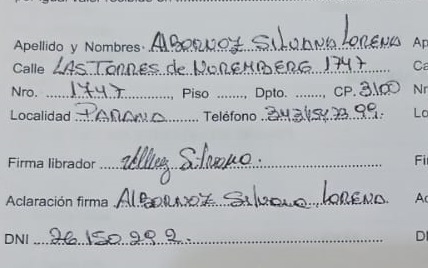 Apellido y Nombres: ALBORNOZ SILVANA LORENA Ap
Calle LAS TORRES de NUREMBERG 1747 Ca
Nro. 1747, Piso ......., Dpto. ......., CP. 3100 Nr
Localidad PARANA Teléfono Lo
Firma librador Silvana. Fi
Aclaración firma ALBORNOZ Silvana LORENA. Ac
DNI 26.150.292. D